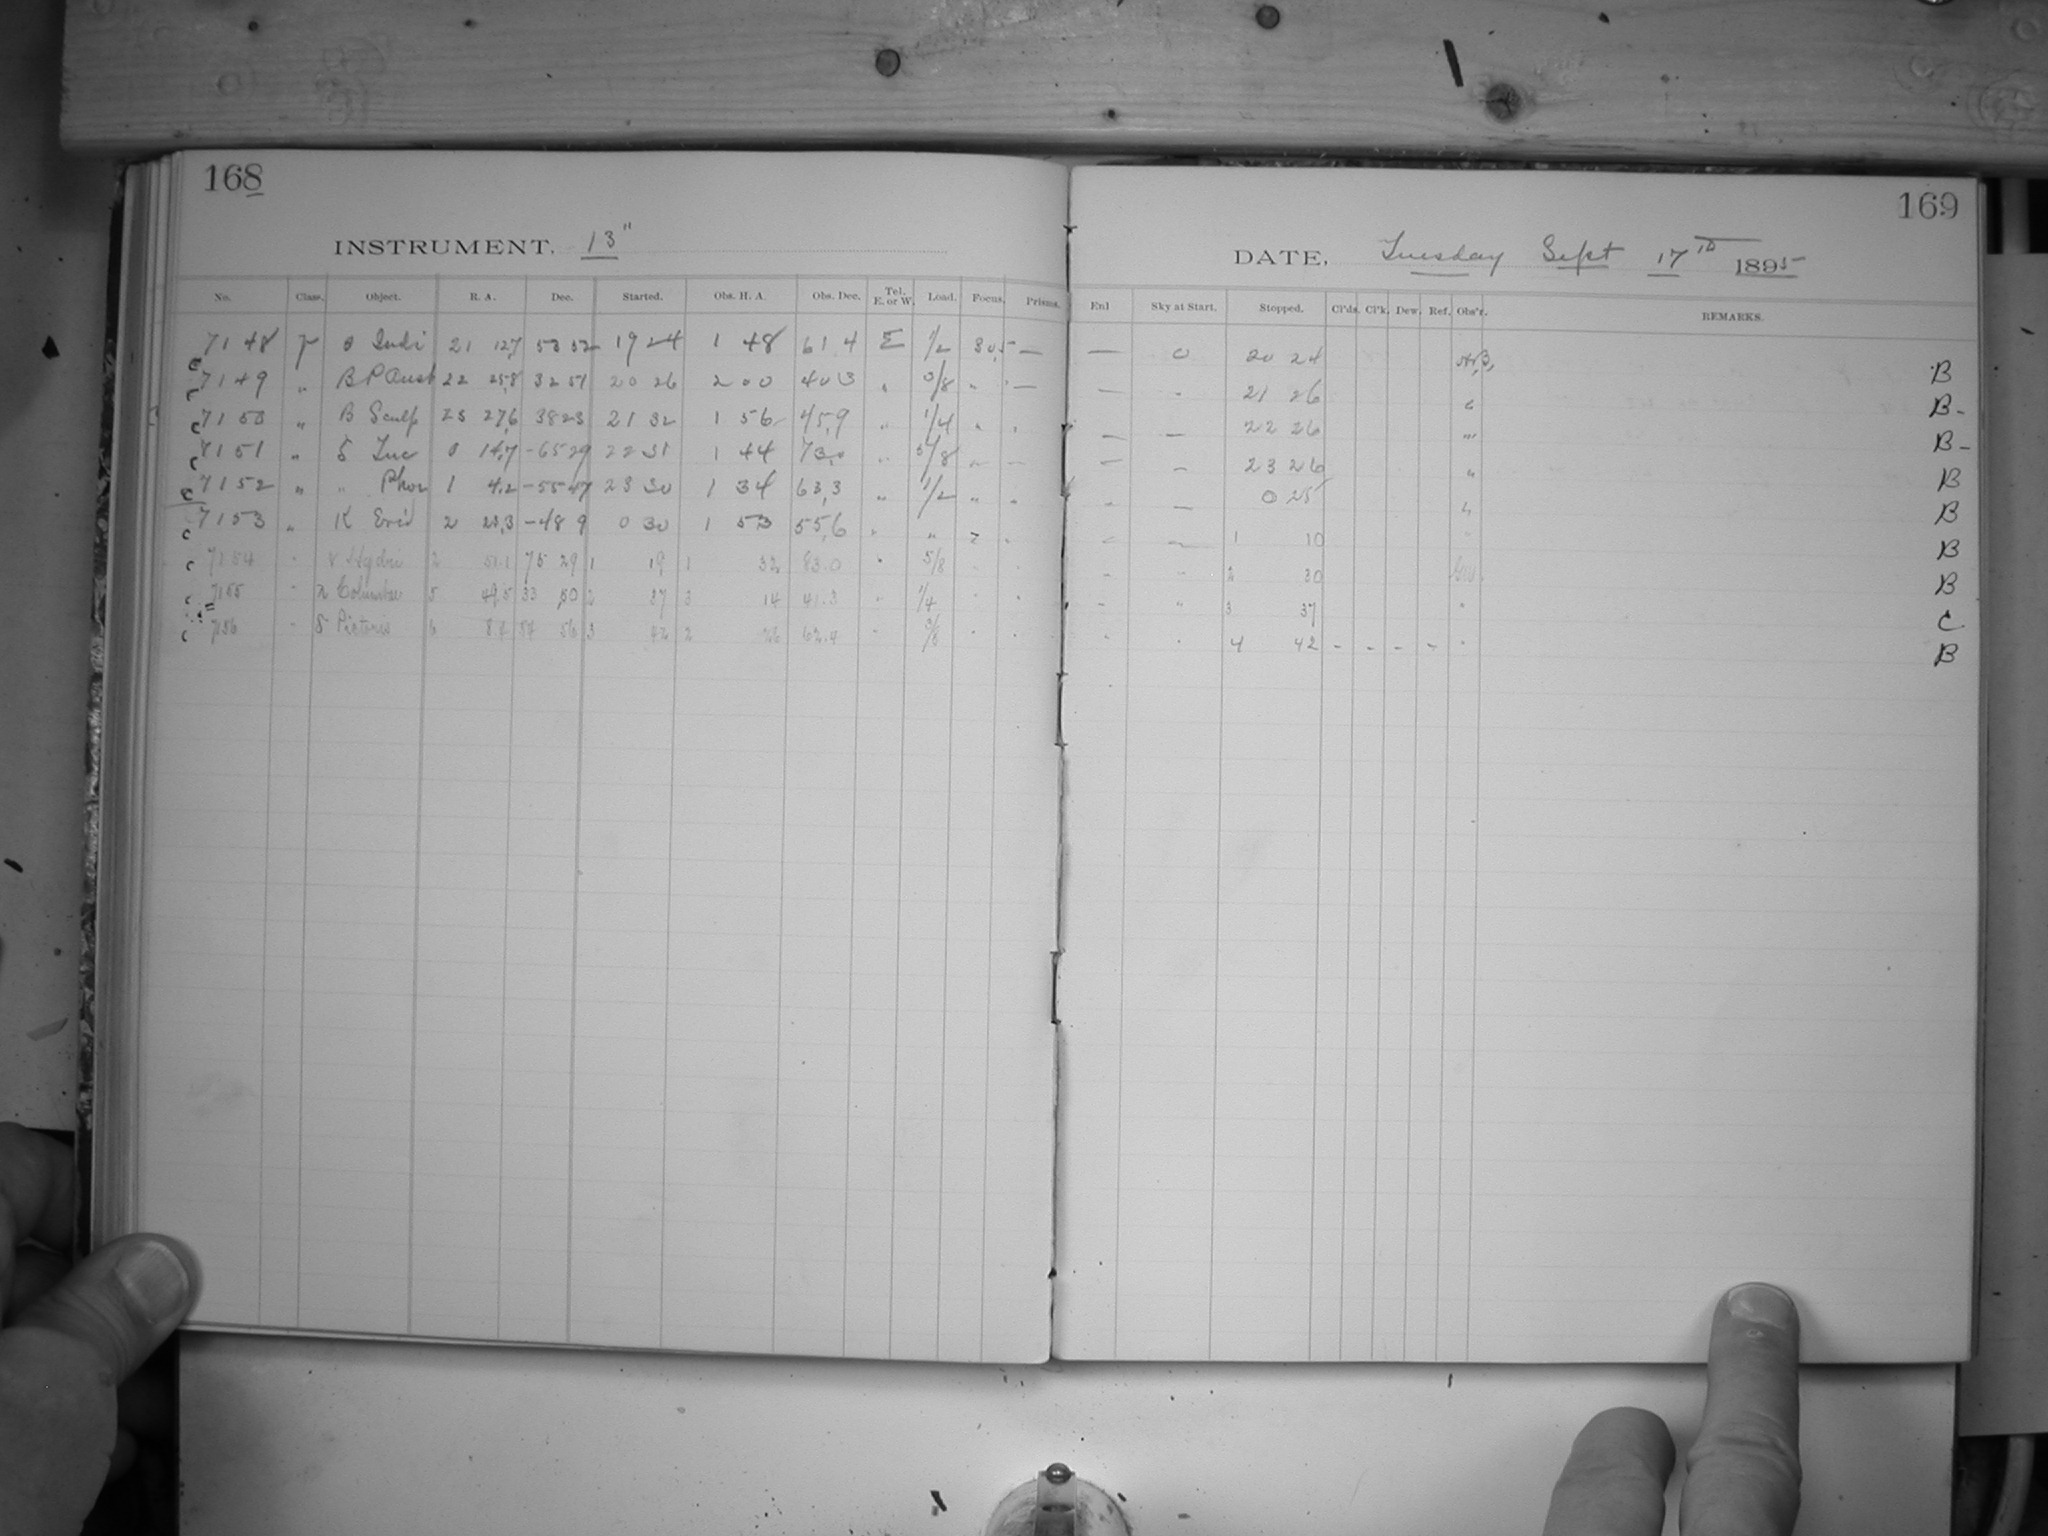 168
INSTRUMENT. 13"
No. Class. Object. R. A. Dec. Started. Obs. H. A. Obs. Dec. Tel. E. or W. Load. Focus. Prisms.
7148 p Indi 21 12,7 53 52 19 24 1 48 61 4 E 1/2 30,5 —
7149 " B P Aust 22 25,8 32 51 20 26 2 00 40 3 " 3/8 " —
7150 " B Sculp 23 27,6 38 23 21 32 1 56 45,9 " 1/4 " "
7151 " Tuc 0 14,7 -65 29 22 31 1 44 73,0 " 5/8 " "
7152 " " Phœ 1 4,2 -55 47 23 30 1 34 63,3 " 1/2 " "
7153 " K Erid 2 23,3 -48 9 0 30 1 53 55,6 " " " "
7154 " ν Hydri 2 51.1 75 29 1 19 1 32 83.0 " 5/8 " "
7155 " Columbae 5 49.5 33 50 2 37 3 14 41.3 " 1/4 " "
7156 " δ Pictoris 6 8.4 54 56 3 42 2 26 62.4 " 3/8 " "
169
DATE, Tuesday Sept 17th 1895
Enl Sky at Start. Stopped. Cl'ds. Cl'k. Dew. Ref. Obs'r. REMARKS.
— 0 20 24 B
— " 21 26 " B-
— — 22 26 " B-
— — 23 26 " B
" — 0 25 " B
" — 1 10 " B
" " 2 30 B
" " 3 37 " C
" " 4 42 - - - - " B